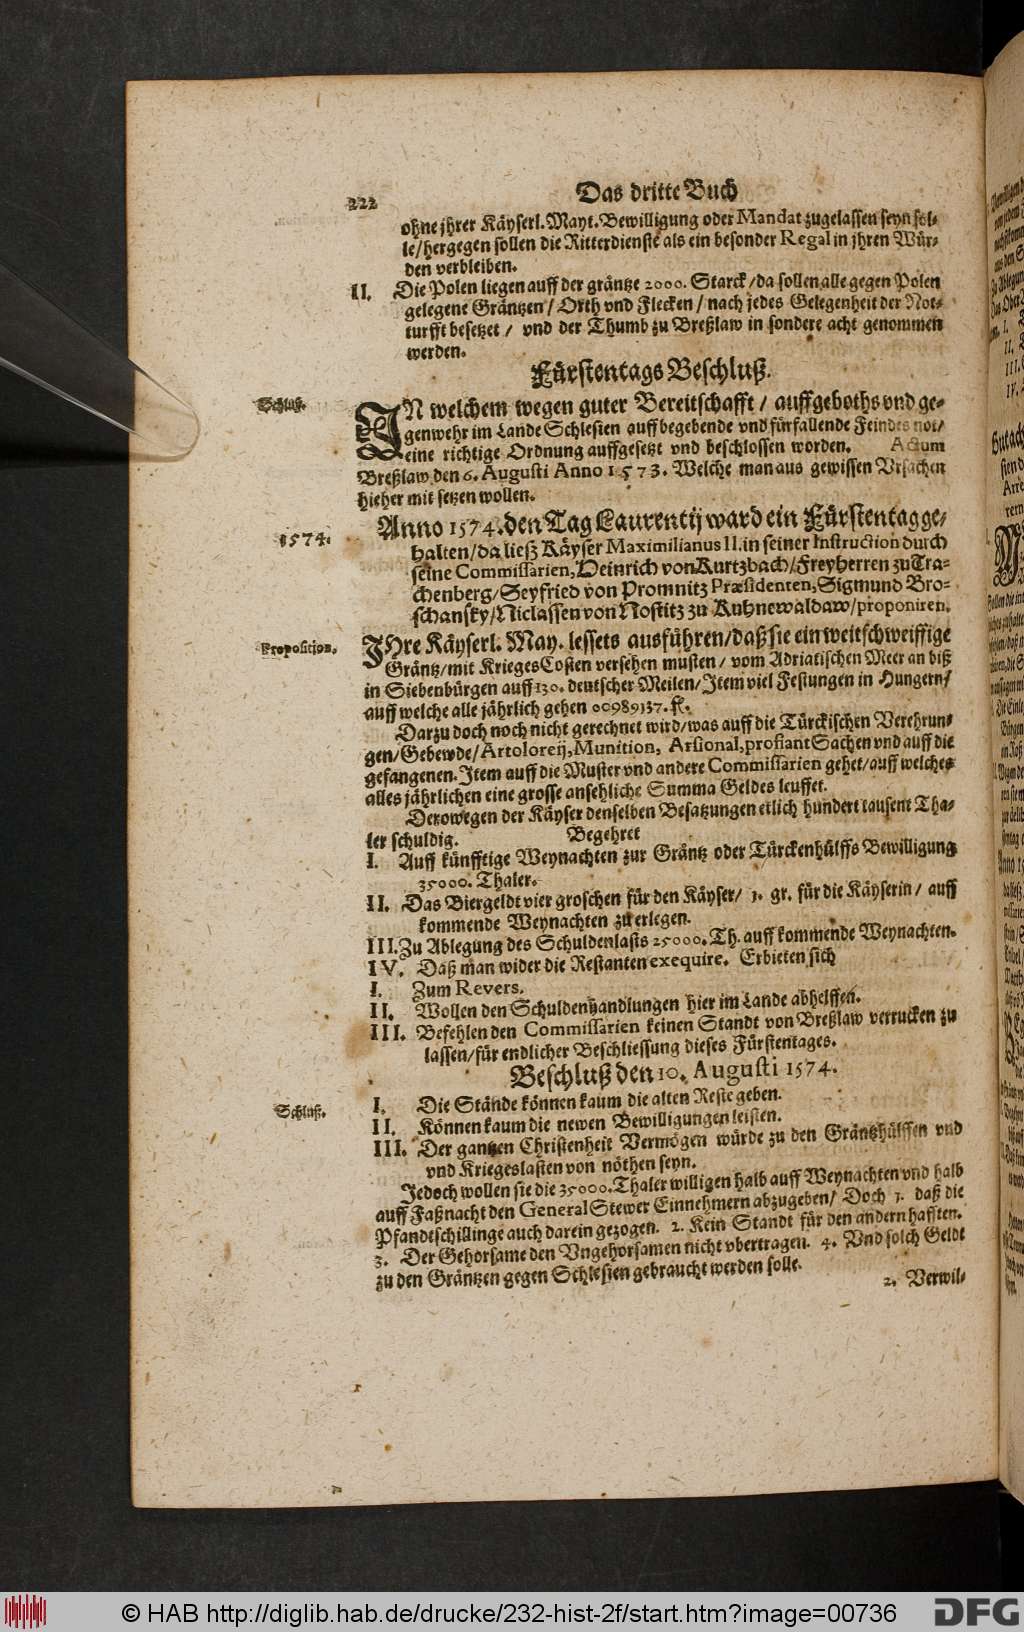 222
Das dritte Buch
ohne jhrer Käyserl. Mayt. Bewilligung oder Mandat zugelassen seyn sol-
le/ hergegen sollen die Ritterdienste als ein besonder Regal in jhren Wür-
den verbleiben.
II. Die Polen liegen auff der gräntze 2000. Starck/ da sollen alle gegen Polen
gelegene Gräntzen/ Orth vnd Flecken/ nach jedes Gelegenheit der Not-
turfft besetzet/ vnd der Thumb zu Breßlaw in sondere acht genommen
werden.
Fürstentags Beschluß.
Schluß.
IN welchem wegen guter Bereitschafft/ auffgeboths vnd ge-
genwehr im Lande Schlesien auff begebende vnd fürfallende Feindes not/
eine richtige Ordnung auffgesetzt vnd beschlossen worden. Actum
Breßlaw den 6. Augusti Anno 1573. Welche man aus gewissen Vrsachen
hieher mit setzen wollen.
1574.
Anno 1574. den Tag Laurentij ward ein Fürstentag ge-
halten/ da ließ Käyser Maximilianus II. in seiner Instruction durch
seine Commissarien, Heinrich von Kurtzbach/ Freyherren zu Tra-
chenberg/ Seyfried von Promnitz Præsidenten, Sigmund Bro-
schansky/ Niclassen von Nostitz zu Kuhnewaldaw/ proponiren.
Proposition.
IHre Käyserl. May. lessets ausführen/ daß sie ein weitschweiffige
Gräntz/ mit Krieges Costen versehen musten/ vom Adriatischen Meer an biß
in Siebenbürgen auff 130. deutscher Meilen/ Item viel Festungen in Hungern/
auff welche alle jährlich gehen 00989137. fl.
Darzu doch noch nicht gerechnet wird/ was auff die Türckischen Verehrun-
gen/ Gebewde/ Artolorey, Munition, Arsional, profiant Sachen vnd auff die
gefangenen. Item auff die Muster vnd andere Commissarien gehet/ auff welches
alles jährlichen eine grosse ansehliche Summa Geldes leuffet.
Derowegen der Käyser denselben Besatzungen etlich hundert tausent Tha-
ler schuldig. Begehret
I. Auff künfftige Weynachten zur Gräntz oder Türckenhülffs Bewilligung
35000. Thaler.
II. Das Biergeldt vier groschen für den Käyser/ 1. gr. für die Käyserin/ auff
kommende Weynachten zu erlegen.
III. Zu Ablegung des Schuldenlasts 25000. Th. auff kommende Weynachten.
IV. Daß man wider die Restanten exequire. Erbieten sich
I. Zum Revers.
II. Wollen den Schuldenhandlungen hier im Lande abhelffen.
III. Befehlen den Commissarien keinen Standt von Breßlaw verrucken zu
lassen/ für endlicher Beschliessung dieses Fürstentages.
Beschluß den 10. Augusti 1574.
Schluß.
I. Die Stände können kaum die alten Reste geben.
II. Können kaum die newen Bewilligungen leisten.
III. Der gantzen Christenheit Vermögen würde zu den Gräntzhülffen vnd
vnd Kriegeslasten von nöthen seyn.
Jedoch wollen sie die 35000. Thaler willigen halb auff Weynachten vnd halb
auff Faßnacht den General Stewer Einnehmern abzugeben/ Doch 1. daß die
Pfandtschillinge auch darein gezogen. 2. Kein Standt für den andern hafften.
3. Der Gehorsame den Vngehorsamen nicht vbertragen. 4. Vnd solch Geldt
zu den Gräntzen gegen Schlesien gebraucht werden solle.
2. Verwil-
© HAB http://diglib.hab.de/drucke/232-hist-2f/start.htm?image=00736
DFG